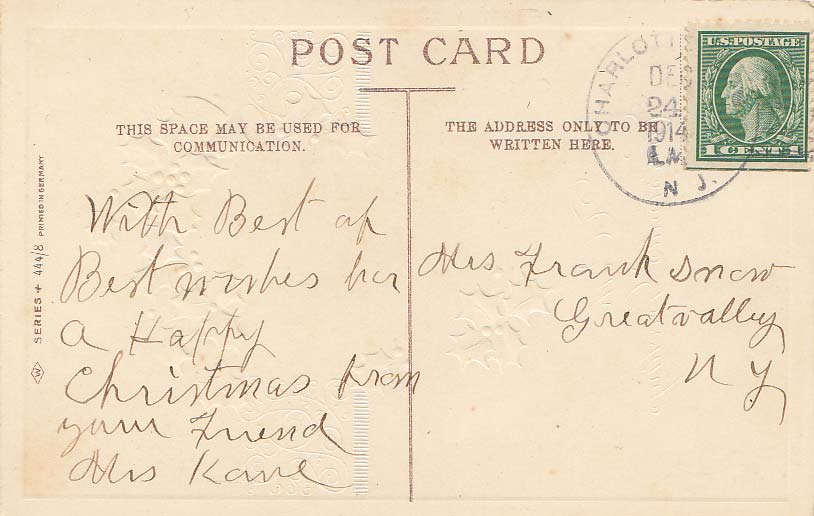 POST CARD
THIS SPACE MAY BE USED FOR
COMMUNICATION.
THE ADDRESS ONLY TO BE
WRITTEN HERE.
CHARLOTT
DEC
24
1914
N J.
U.S. POSTAGE
1 CENT 1
SERIES 444/8 PRINTED IN GERMANY
W
With Best of
Best wishes for
a Happy
Christmas from
your Friend
Mrs Kane
Mrs Frank Snow
Great valley
N Y